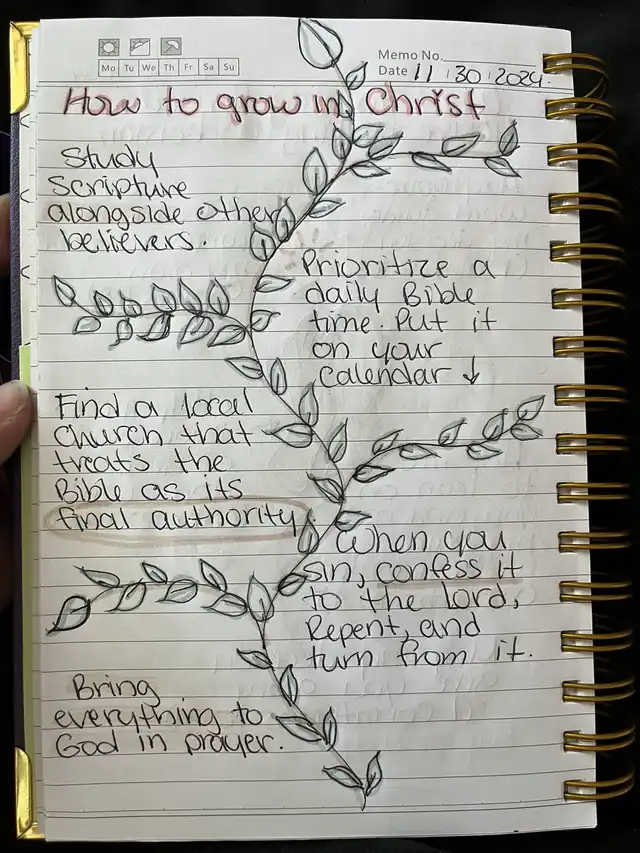 Memo No.
Mo Tu We Th Fr Sa Su
Date 11 / 30 / 2024.
How to grow in Christ
Study
Scripture
alongside other
believers.
Prioritize a
daily Bible
time. Put it
on your
calendar ↓
Find a local
church that
treats the
Bible as its
final authority
When you
sin, confess it
to the Lord,
Repent, and
turn from it.
Bring
everything to
God in prayer.